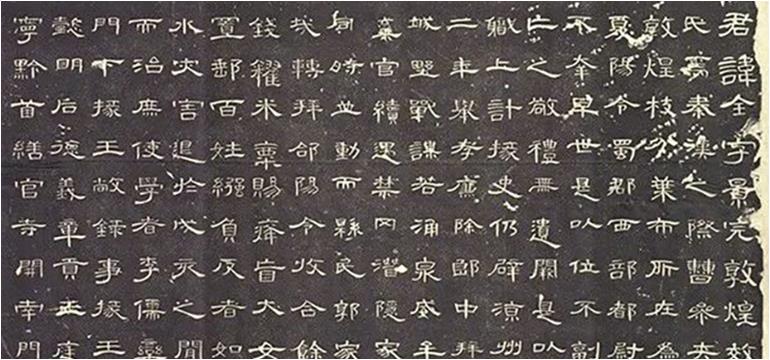 君諱全字景完敦煌效
氏焉秦漢之際曹參夾
敦煌枝分葉布所在為
夏陽令蜀郡西部都尉
不幸早世是以位不副
亡之敬禮無遺闕是以
職上計掾史仍辟涼州
二年舉孝廉除郎中拜
城野戰謀若涌泉威牟
棄官續遇禁冈潛隱家
同時並動而縣民郭家
烖轉拜郃陽令收合餘
錢糴米粟賜癃盲大女
置郵百姓繦負反者如
水灾害退於戌亥之間
而治庶使學者李儒欒
門下掾王敞錄事掾王
懿明后德義章貢王庭
寧黔首繕官寺開南門